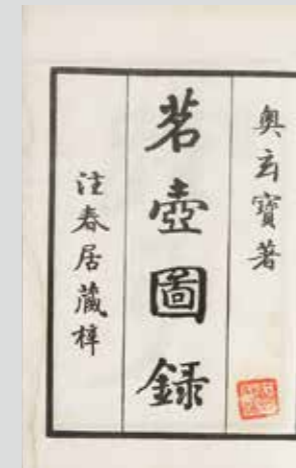 奥玄寶著
茗壺圖録
注春居藏梓